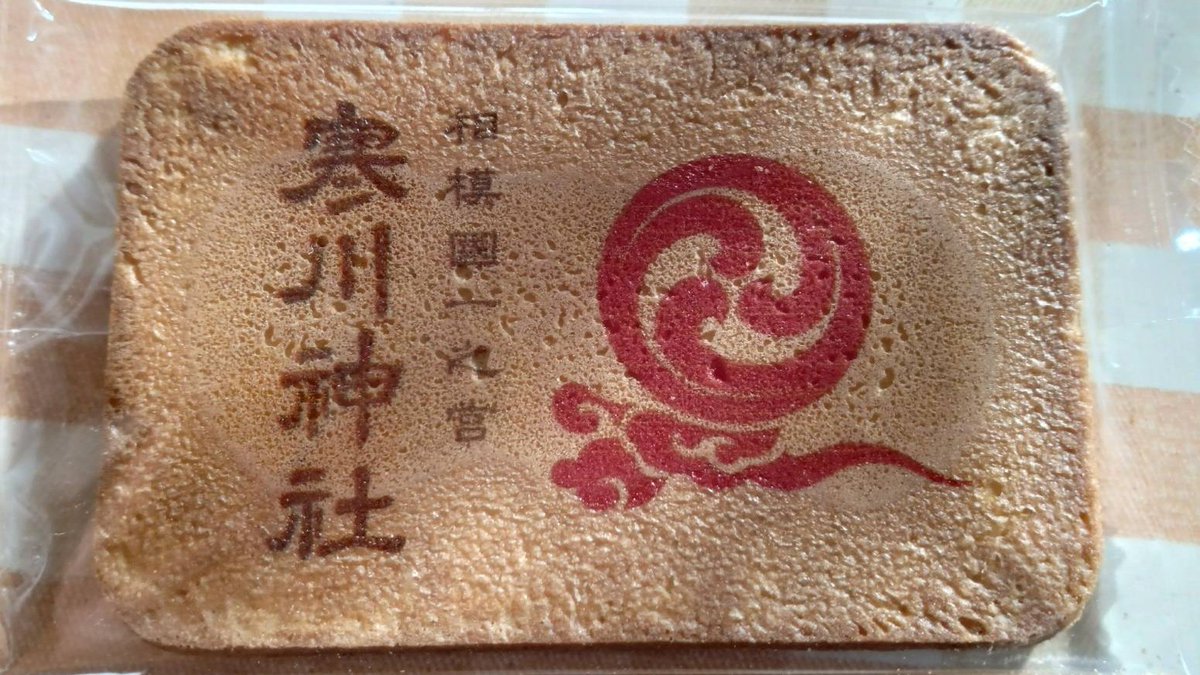 相模國一之宮
寒川神社